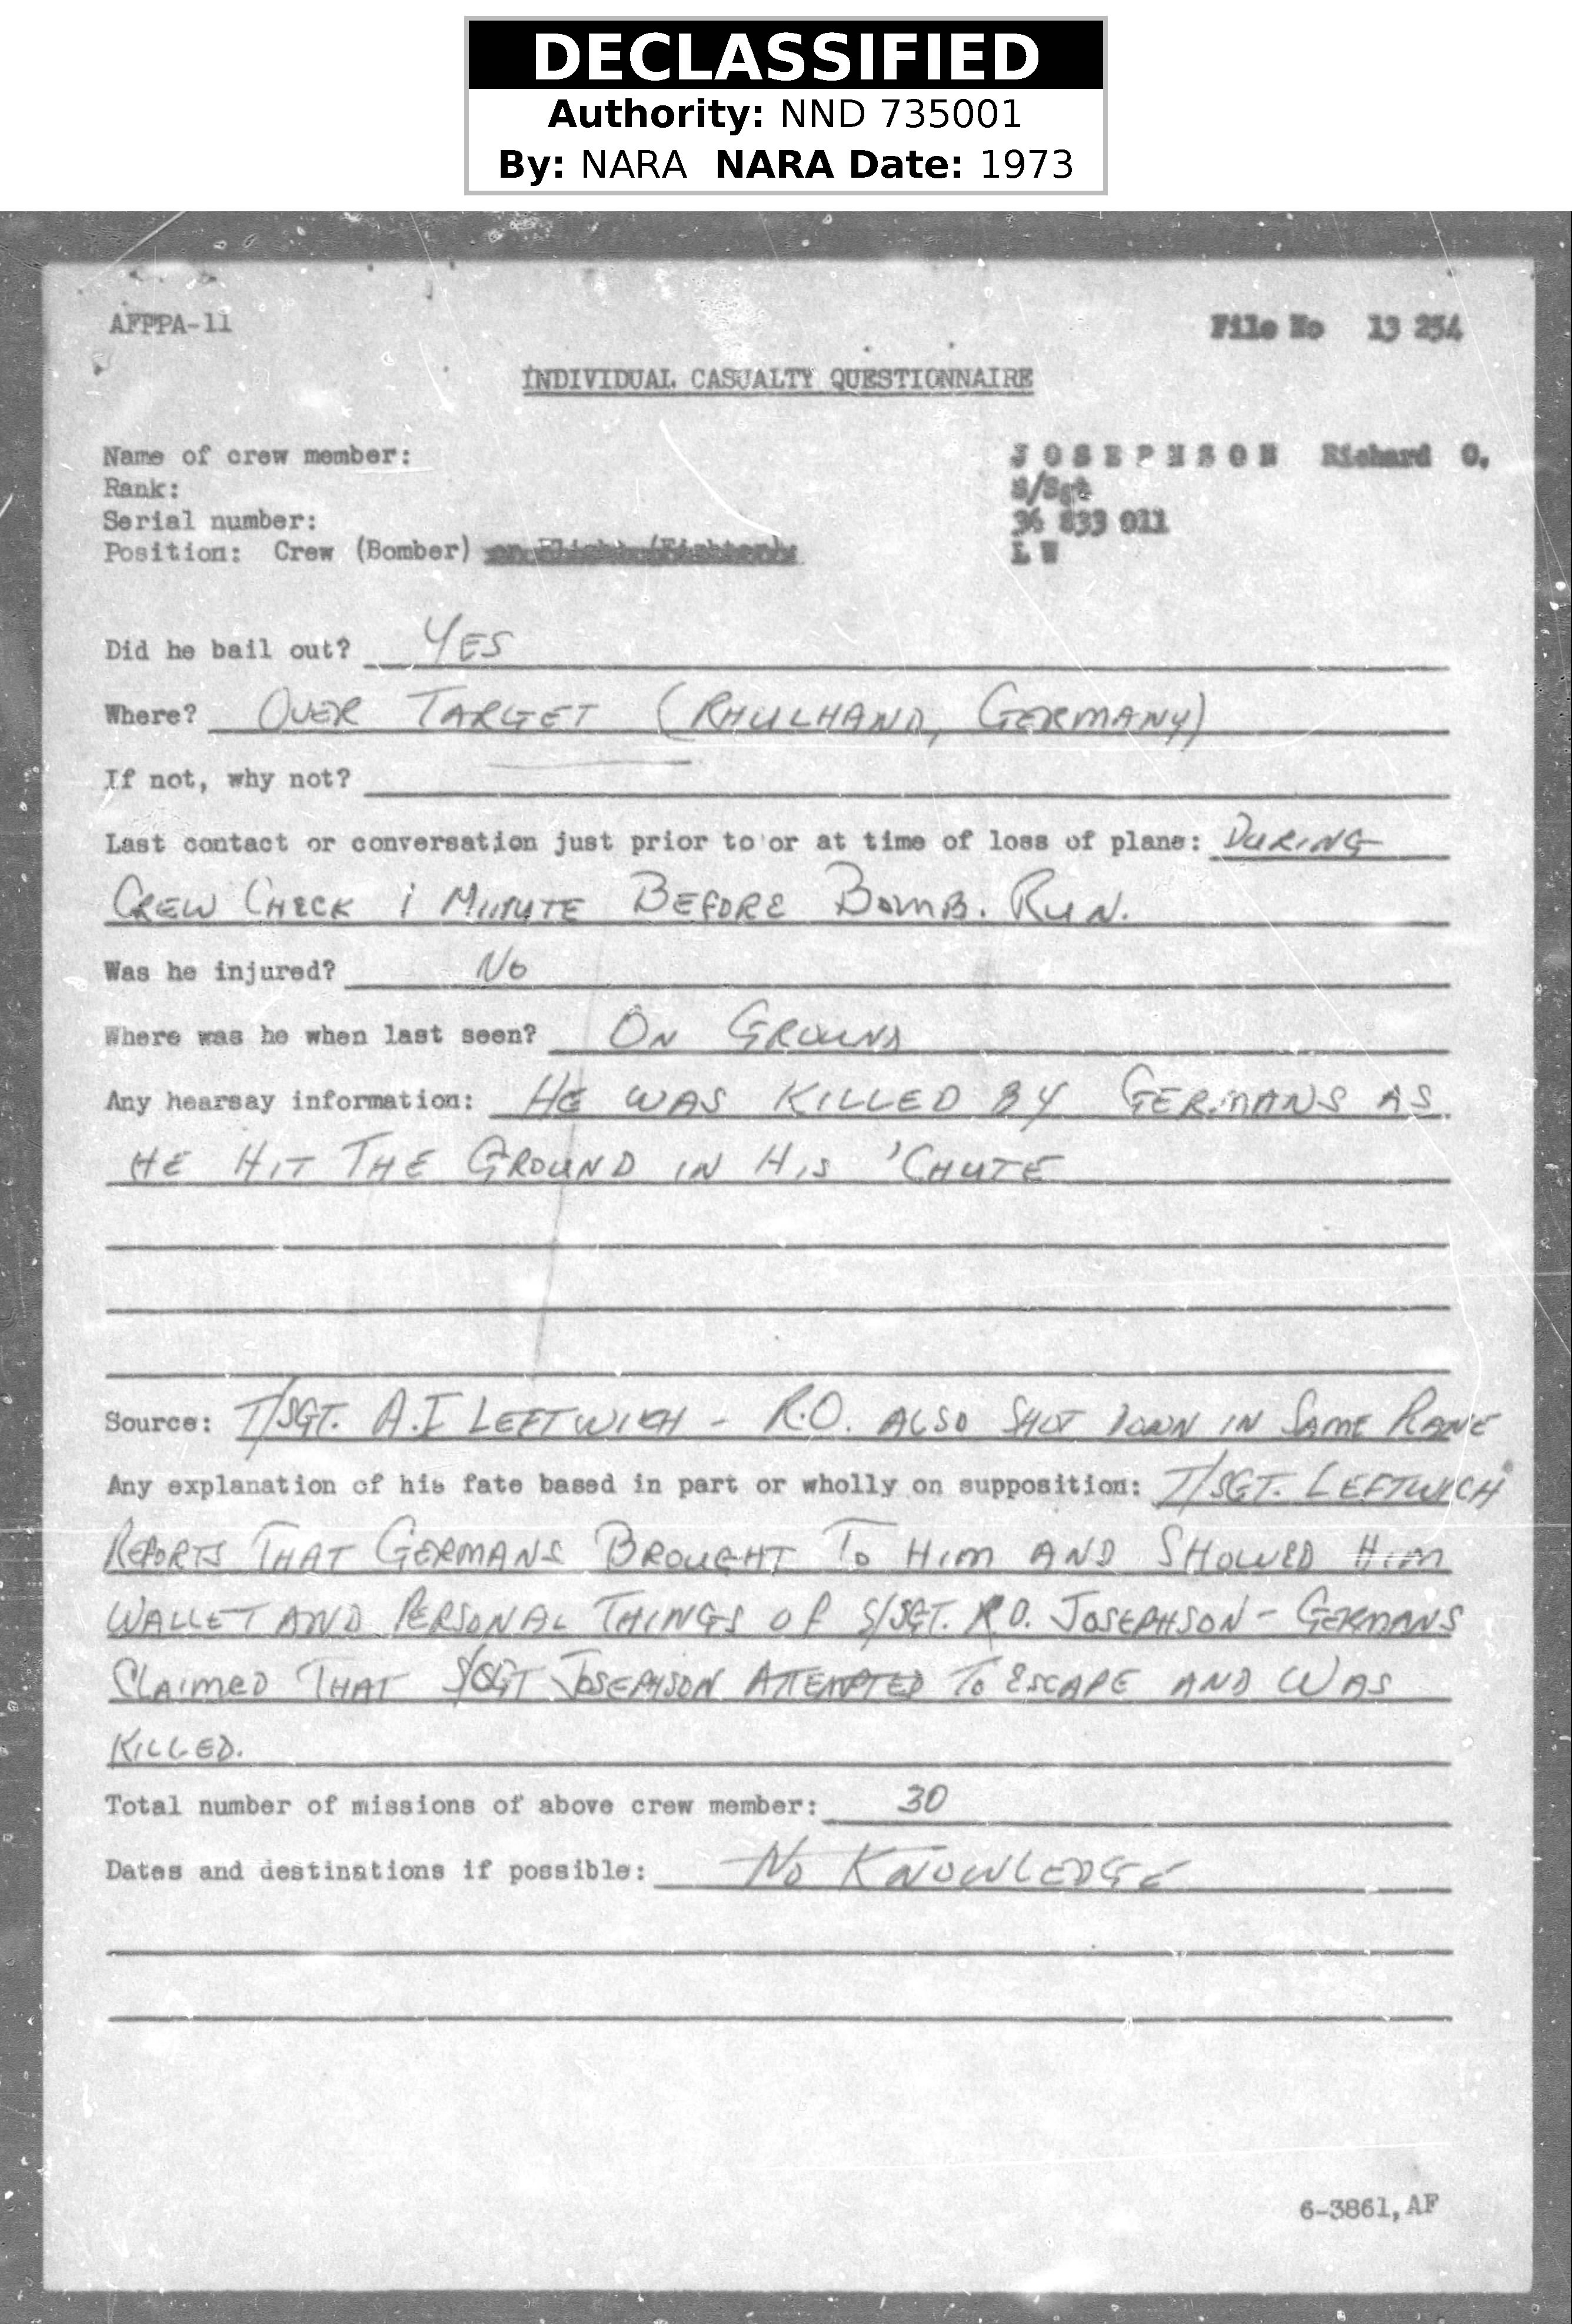 DECLASSIFIED
Authority: NND 735001
By: NARA NARA Date: 1973
AFPPA-11
File No 13 254
INDIVIDUAL CASUALTY QUESTIONNAIRE
Name of crew member: JOSEPHSON Richard O.
Rank: S/Sgt
Serial number: 36 833 011
Position: Crew (Bomber) or Flight (Fighter): L W
Did he bail out? YES
Where? OVER TARGET (RHULHAND, GERMANY)
If not, why not?
Last contact or conversation just prior to or at time of loss of plane: DURING
CREW CHECK 1 MINUTE BEFORE BOMB. RUN.
Was he injured? NO
Where was he when last seen? ON GROUND
Any hearsay information: HE WAS KILLED BY GERMANS AS
HE HIT THE GROUND IN HIS 'CHUTE
Source: T/SGT. A.I LEFTWICH - R.O. ALSO SHOT DOWN IN SAME PLANE
Any explanation of his fate based in part or wholly on supposition: T/SGT. LEFTWICH
REPORTS THAT GERMANS BROUGHT TO HIM AND SHOWED HIM
WALLET AND PERSONAL THINGS OF S/SGT. R.O. JOSEPHSON - GERMANS
CLAIMED THAT S/SGT JOSEPHSON ATTEMPTED TO ESCAPE AND WAS
KILLED.
Total number of missions of above crew member: 30
Dates and destinations if possible: NO KNOWLEDGE
6-3861, AF